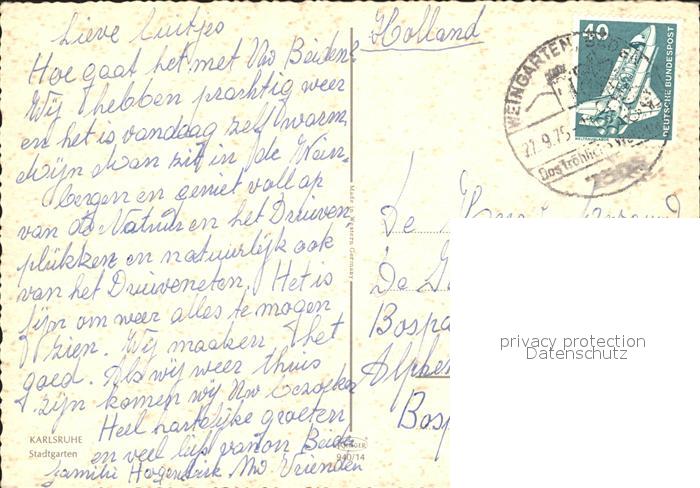 Lieve Luitjes
Hoe gaat het met Uw Beiden?
Wij hebben prachtig weer
en het is vandaag zelf warm
mijn man zit in de Wein-
bergen en geniet voll op
van de Natuur en het Druiven
plukken en natuurlijk ook
van het Druiveneten. Het is
fijn om weer alles te mogen
zien. Wij maaken het
goed. Als wij weer thuis
zijn komen wij Uw bezoeken
Heel hartelijke groeten
en veel liefs van on Beide
familie Hogendirk Uw Vrienden
KARLSRUHE
Stadtgarten
940/14
Made in Western Germany
Holland
WEINGARTEN, BADEN
27.9.75
Das fröhliche
40
DEUTSCHE BUNDESPOST
De
De
Bospa
Alphen
Bosp
privacy protection
Datenschutz